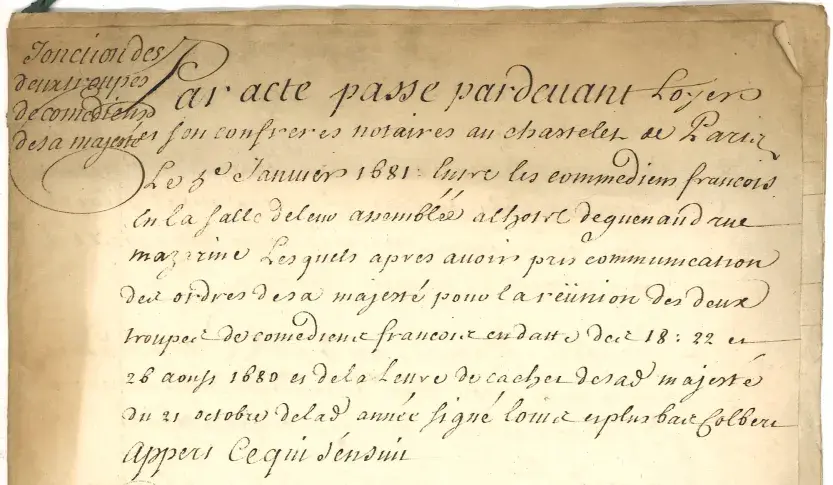 Jonction des
deux troupes
de comediens
de sa majesté
Par acte passé pardevant Loyer
et son confreres notaires au chastelet de Paris
Le 5e Janvier 1681 Entre les commediens francois
En la salle de leur assemblée a lhotel de guenaud rue
mazarine Lesquels apres avoir pris communication
des ordres de sa majesté pour la reünion des deux
troupes de comediens francois en datte des 18: 22 et
26 aoust 1680 et de la Lettre de cachet de sad majesté
du 21 octobre de lad année signé Louis et plus bas Colbert
Appert Ce qui s'ensuit